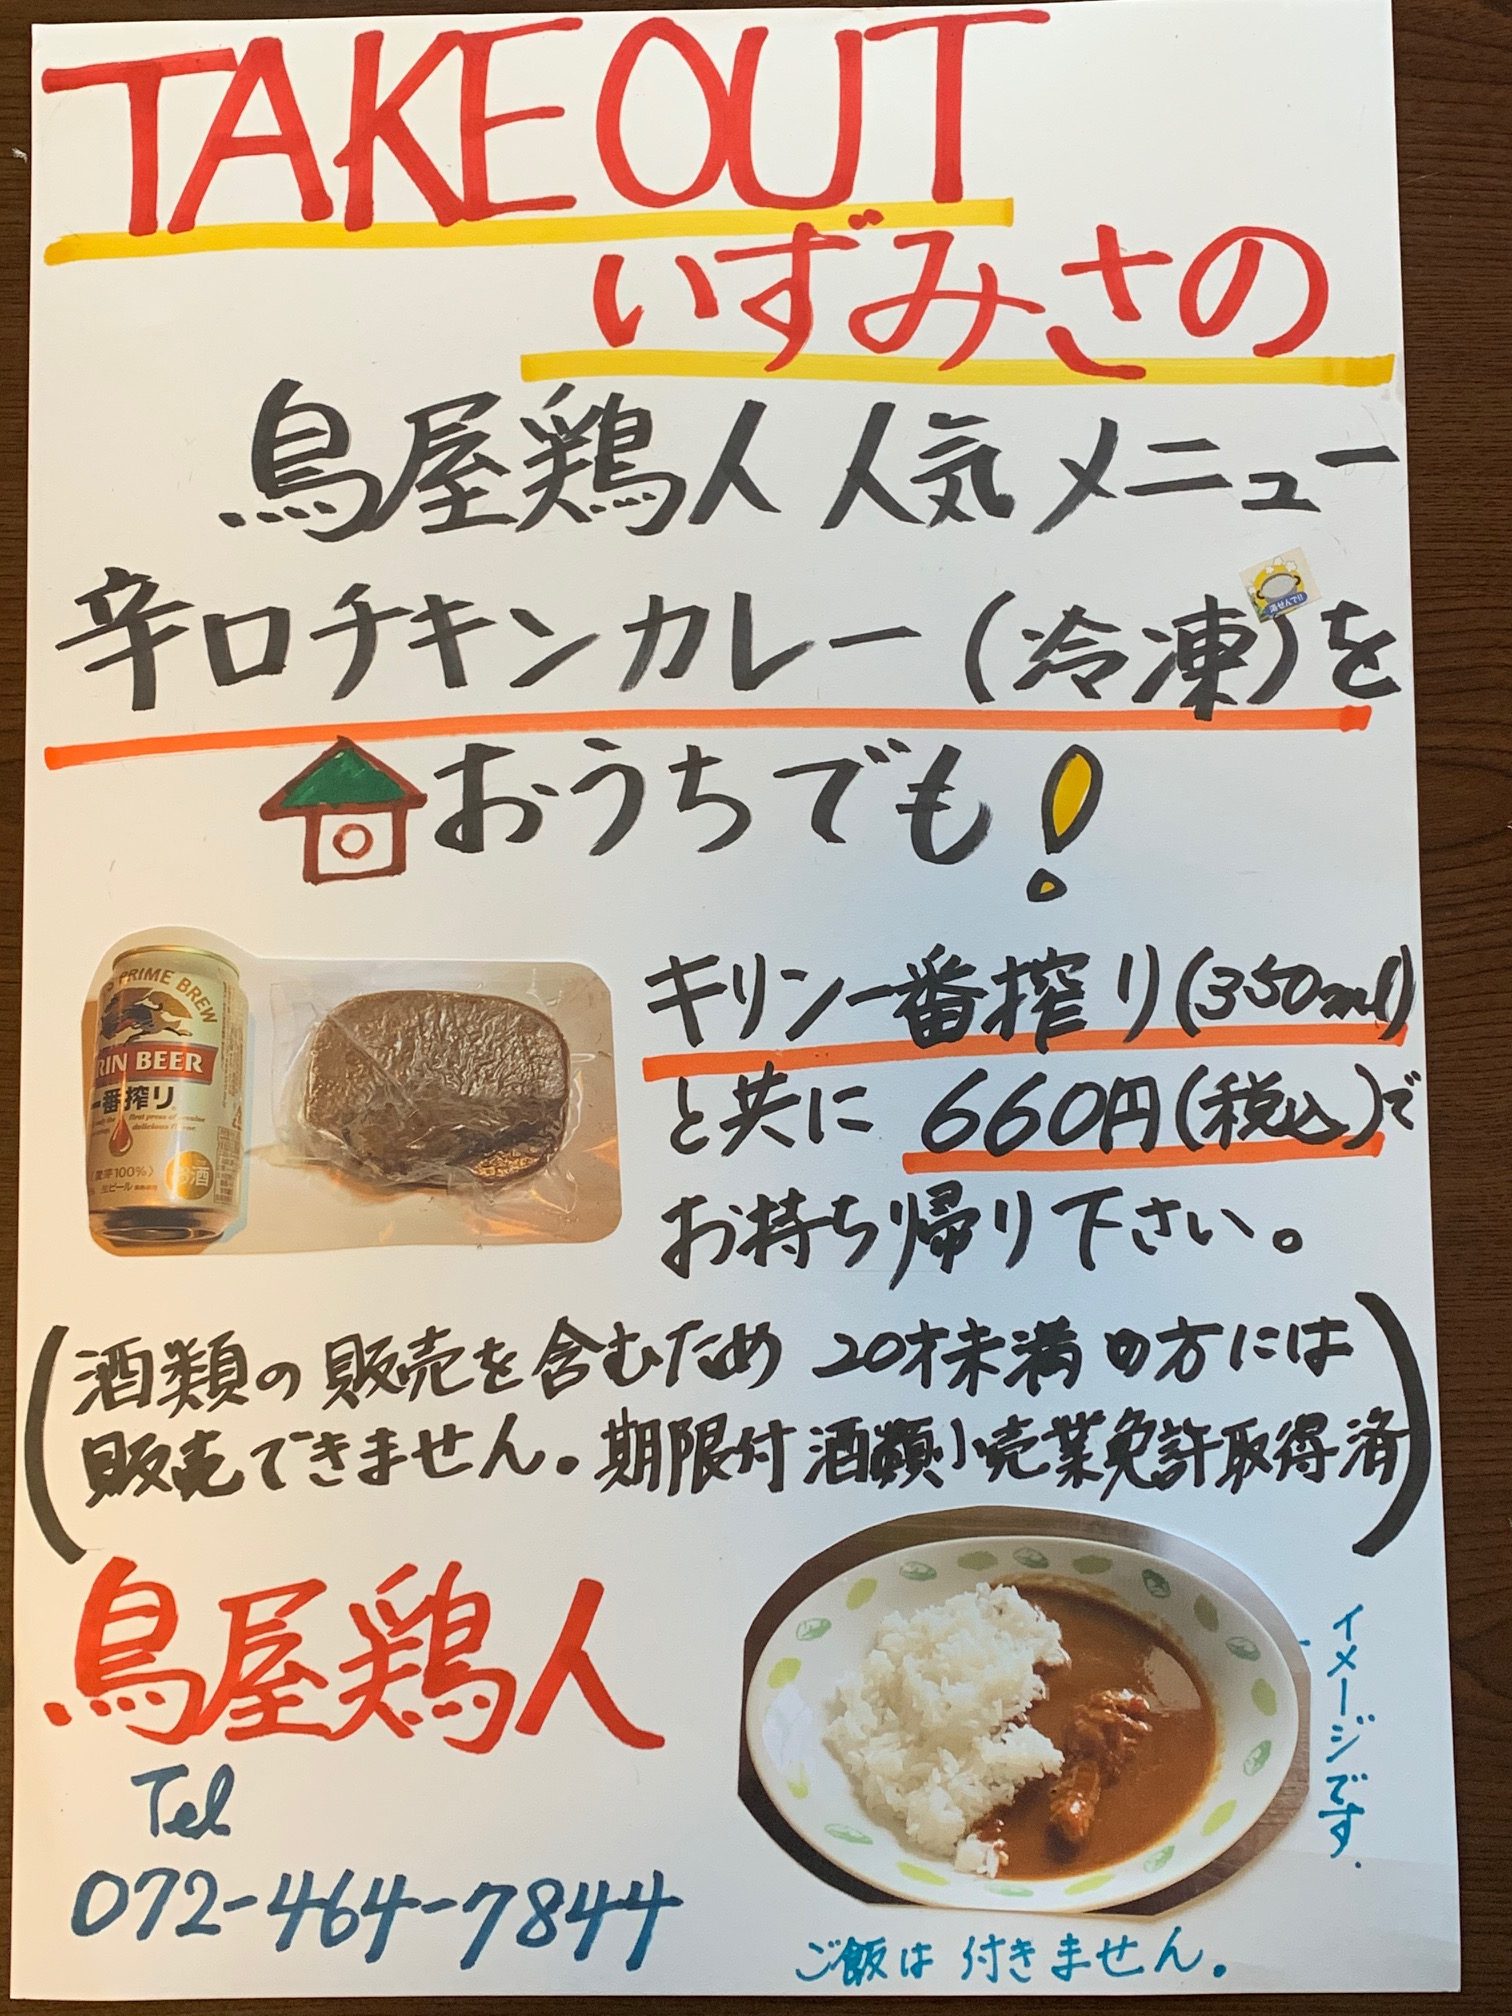 TAKE OUT
いずみさの
鳥屋鶏人 人気メニュー
湯せんで!!
辛口チキンカレー(冷凍)を
おうちでも!
キリン一番搾り(350ml)
と共に 660円(税込)で
お持ち帰り下さい。
PRIME BREW
RIN BEER
一番搾り
first press of genuine
delicious flavor.
麦芽100%〉
生ビール
お酒
(酒類の販売を含むため 20才未満の方には
販売できません。期限付酒類小売業免許取得済)
鳥屋鶏人
Tel
072-464-7844
イメージです.
ご飯は付きません。